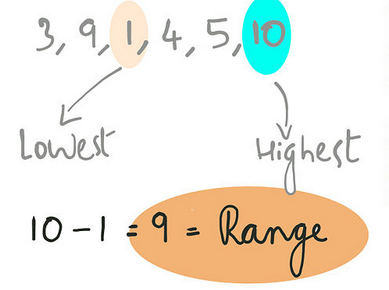 3, 9, 1, 4, 5, 10
Lowest Highest
10 - 1 = 9 = Range